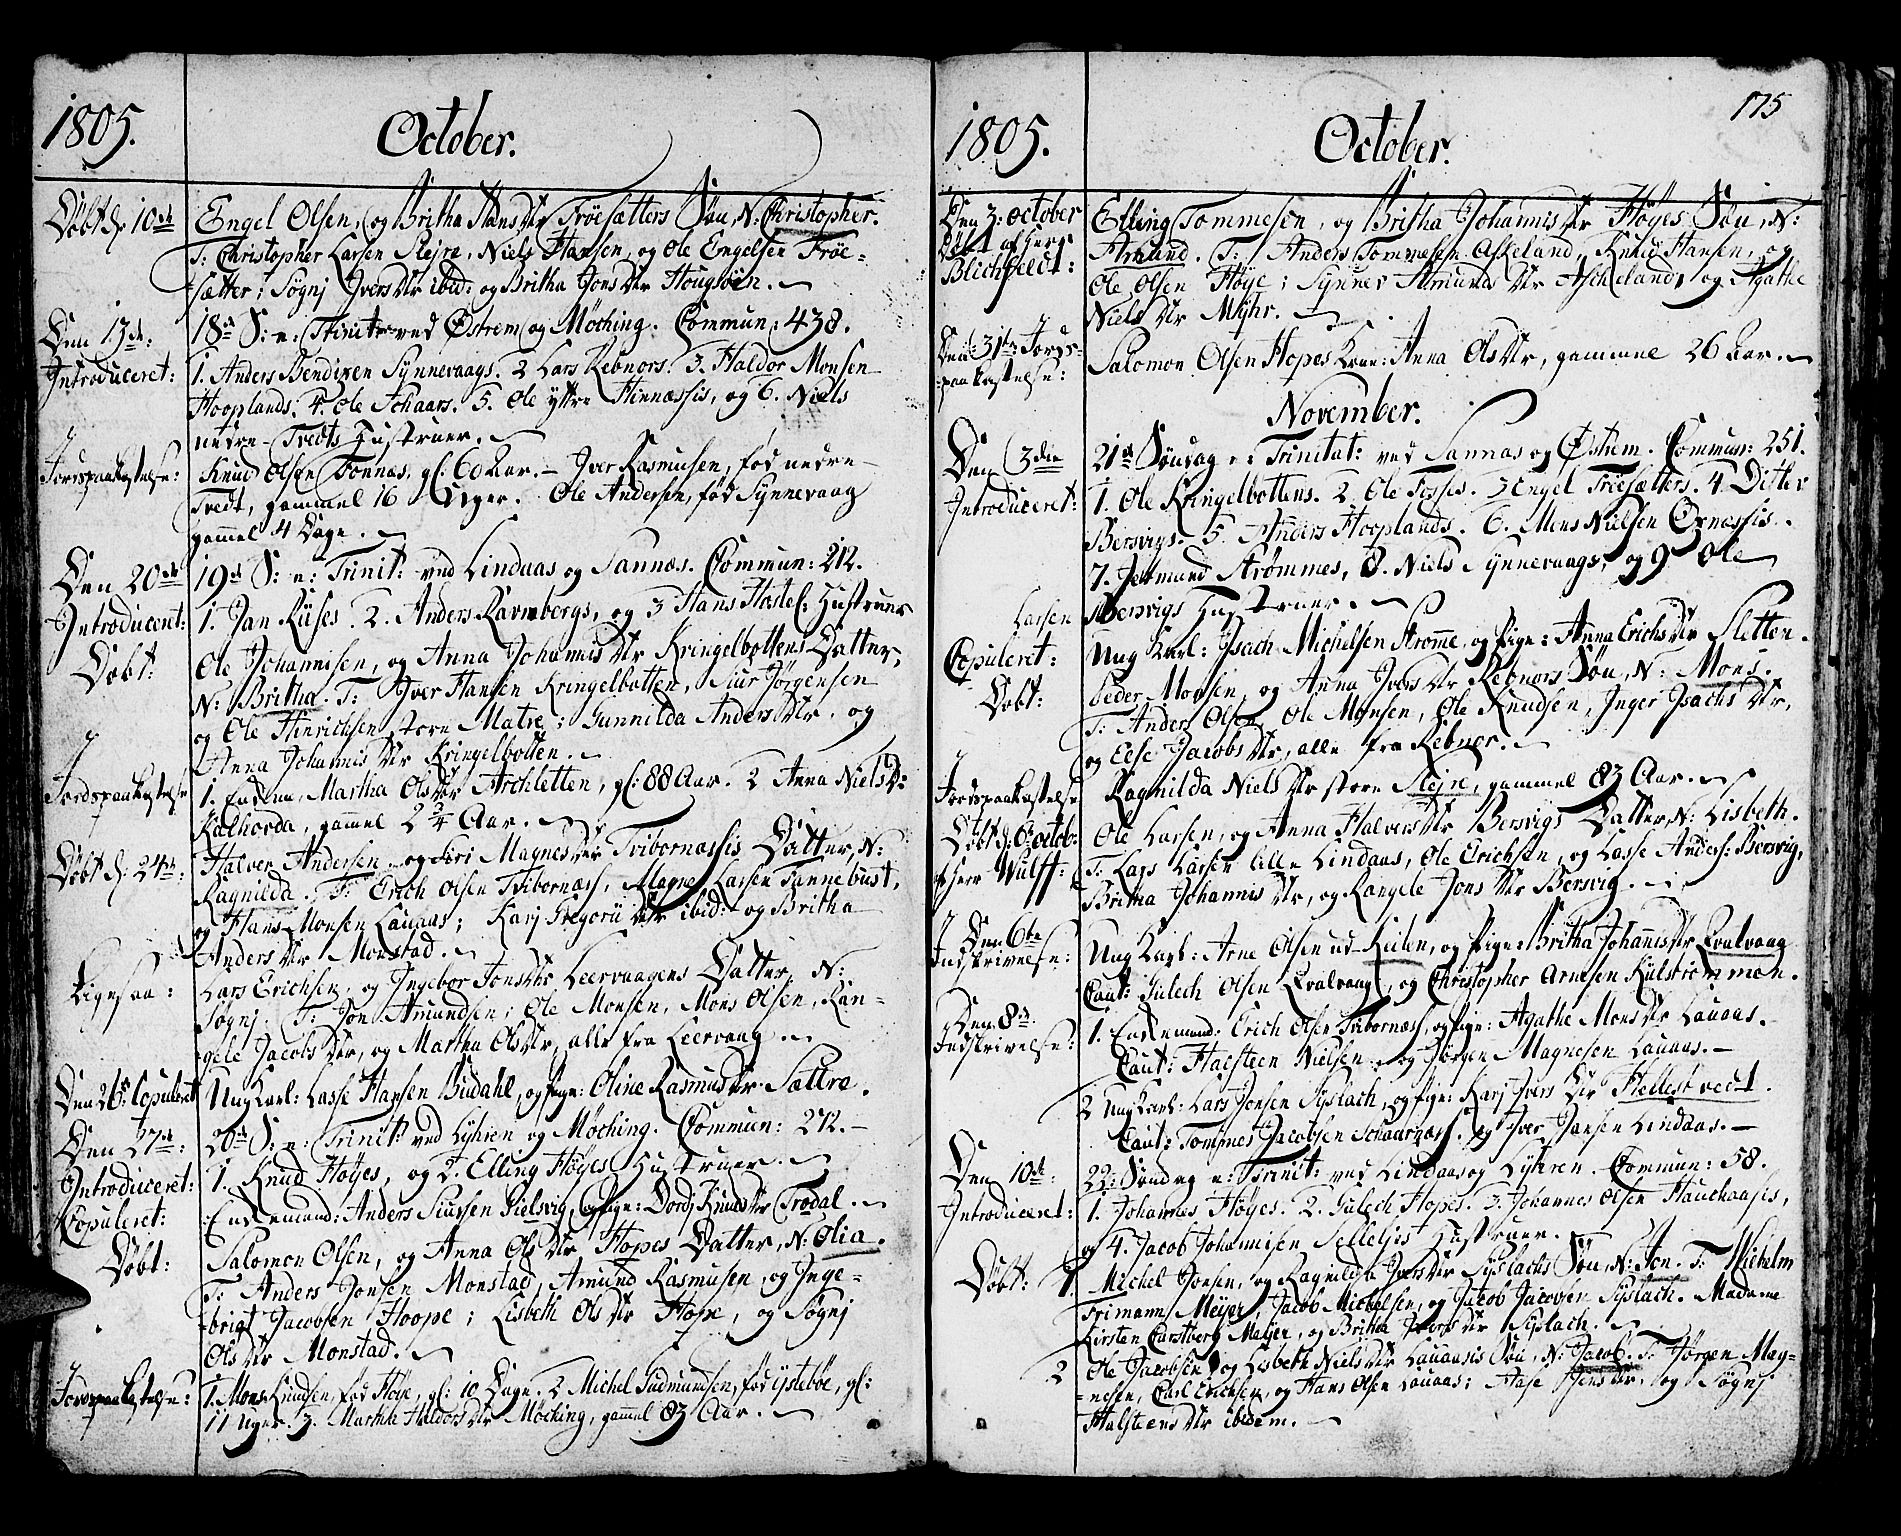 1805.
October.
Döbt d: 10de
Engel Olsen, og Britha HansDtr Fröesætters Sön, N: Christopher.
T: Christopher Larsen Slejre, Niels Hansen, og Ole Engelsen Fröe-
sætter; Sögnj IversDtr ibid: og Britha JonsDtr Hougsöen.
Den 13de:
18de S: e: Trinit: ved Østrem og Möching. Commun: 438.
Introduceret:
1. Anders Bendixen Synnevaags. 2 Lars Rebnors. 3. Haldor Monsen
Hooplands. 4. Ole Schaars. 5. Ole yttre Hinnæssis, og 6. Niels
nedre-Tvedts Hustruer.
Jordspaakastelse:
Knud Olsen Fonnæs, gl: 60 Aar. - Iver Rasmusen, fød nedre-
Tvedt, gammel 16 Uger. Ole Andersen, fød Synnevaag
gammel 4 Dage.
Den 20de
19de S: e: Trinit: ved Lindaas og Sannæs. Commun: 212.
Introduceret:
1. Jan Riises. 2. Anders Ravnbergs, og 3 Hans Hostel: Hustruer
Döbt:
Ole Johannisen, og Anna JohannisDtr Kringelbottens Datter,
N: Britha. T: Iver Hansen Kringelbotten, Siur Jörgensen
og Ole Hinrichsen store Matre; Gunnilda AndersDtr, og
Anna JohannisDtr Kringelbotten.
Jordspaakastelse
1. Enkene Martha OlsDtr Archletten, gl: 88 Aar. 2 Anna NielsD:
Kalhorda, gammel 2 3/4 Aar.
Döbt d: 24de:
Halver Andersen og Siri MagnesDtr Tvibornæssis Datter, N:
Ragnilda. T: Erich Olsen Tvibornæss, Magne Larsen Tannebust,
og Hans Monsen Lauaas; Karj GregoriiDtr ibid: og Britha
AndersDtr Monstad.
Ligesaa:
Lars Erichsen, og Ingebor JonsDtr Leervaagens Datter, N:
Sögnj. T: Jon Amundsen, Ole Monsen, Mons Olsen, Ran-
gele JacobsDtr, og Martha OlsDtr, alle fra Leervaag.
Den 26: Copuleret
Ung Karl: Lasse Hansen Budahl, og Pige: Oline RasmusDtr Sættre.
Den 27de:
20de S: e: Trinit: ved Lyhren og Möching. Commun: 272.
Introduceret:
1. Knud Höyes, og 2. Elling Höyes Hustruer.
Copuleret:
Enkemand: Anders Siursen Sielsvig, og Pige: Dordj KnudsDtr Trodal.
Döbt:
Salomon Olsen, og Anna OlsDtr Hopes Datter, N: Olia.
T: Anders Jonsen Monstad, Amund Rasmusen, og Inge-
brigt Jacobsen Hoope; Lisbeth OlsDtr Hope, og Sögnj
OlsDtr Monstad.
Jordspaakastelse:
1. Mons Knudsen, fød Höye, gl: 10 Dage. 2 Michel Gudmundsen, fød ystebøe, gl:
11 Uger. 3. Martha HaldorsDtr Möching, gammel 83 Aar.
175
1805.
October.
Den 3: october
Döbt af Herr
Blichfeldt:
Elling Tommesen, og Britha JohannisDtr Höyes Sön, N:
Amund. T: Anders Tommesen Askeland, Knud Hansen, og
Ole Olsen Höye; Synnev AmundsDtr Ascheland, og Agathe
NielsDtr Myhr.
Den 31te: Jords-
paakastelse:
Salomon Olsen Hopes Kone: Anna OlsDtr, gammel 26 Aar.
November.
Den 3die
21de Söndag e: Trinitat: ved Sannæs og Østrem. Commun: 251.
Introduceret:
1. Ole Kringelbottens. 2. Ole Fosses. 3 Engel Fröesætters. 4. Ditlev
Bersvigs. 5. Anders Hooplands. 6. Mons Nielsen Øxnæssis.
7. Jermund Strømmes, 8. Niels Synnevaags, og 9 Ole
Larsen Bersvigs Hustruer.
Copuleret:
Ung Karl: Isach Michelsen Strømme, og Pige: Anna ErichsDtr Sletten.
Döbt:
Peder Monsen, og Anna IversDtr Rebnors Sön, N: Mons.
T: Anders Olsen, Ole Monsen, Ole Knudsen, Inger IsachsDtr,
og Else JacobsDtr, alle fra Rebnor.
Jordspaakastelse
Ragnilda NielsDtr store Slejre, gammel 83 Aar.
Döbt d: 6: octob:
af Herr Wulff:
Ole Larsen, og Anna HalversDtr Bersvigs Datter, N: Lisbeth.
T: Lars Larsen lille Lindaas, Ole Erichsen, og Lasse Anders: Bersvig,
Britha JohannisDtr, og Rangele JonsDtr Bersvig.
Den 6te
Indskrivelse:
Ung Karl: Arne Olsen ud-Keilen, og Pige: Britha JohannisDtr Evalvaag
Caut: Gulech Olsen Evalvaag, og Christopher Arnesen Kulströmmen.
Den 8de:
Indskrivelse:
1. Enkemand: Erich Olsen Tvibornæss, og Pige: Agathe MonsDtr Lauaas.
Caut: Halsteen Nielsen, og Jörgen Magnesen Lauaas.
2 Ung Karl: Lars Jonsen Syslach, og Pige: Karj IversDtr Hellestvedt.
Caut: Tommes Jacobsen Schaarnæss, og Iver Jansen Lindaas.
Den 10de
22: Söndag e: Trinit: ved Lindaas og Lyhren. Commun: 58.
Introduceret:
1. Johannes Höyes. 2. Gulech Hopes. 3. Johannes Olsen Hauchaases,
og 4. Jacob Johannisen Sellelses Hustruer.
Döbt: 1
Michel Jonsen, og Ragnilda IversDtr Syslachs Sön, N: Jon. T: Wilhelm
Frimann Meÿer, Jacob Michelsen, og Jacob Jacobsen Syslach. Madame
Kirsten Carstberg Meÿer, og Britha IversDtr Syslach.
2 Ole Jacobsen, og Lisbeth NielsDtr Lauaasis Sön, N: Jacob. T: Jörgen Mag-
nesen, Carl Erichsen, og Hans Olsen Lauaas; Aase JensDtr, og Sögnj
HalsteensDtr ibidem.